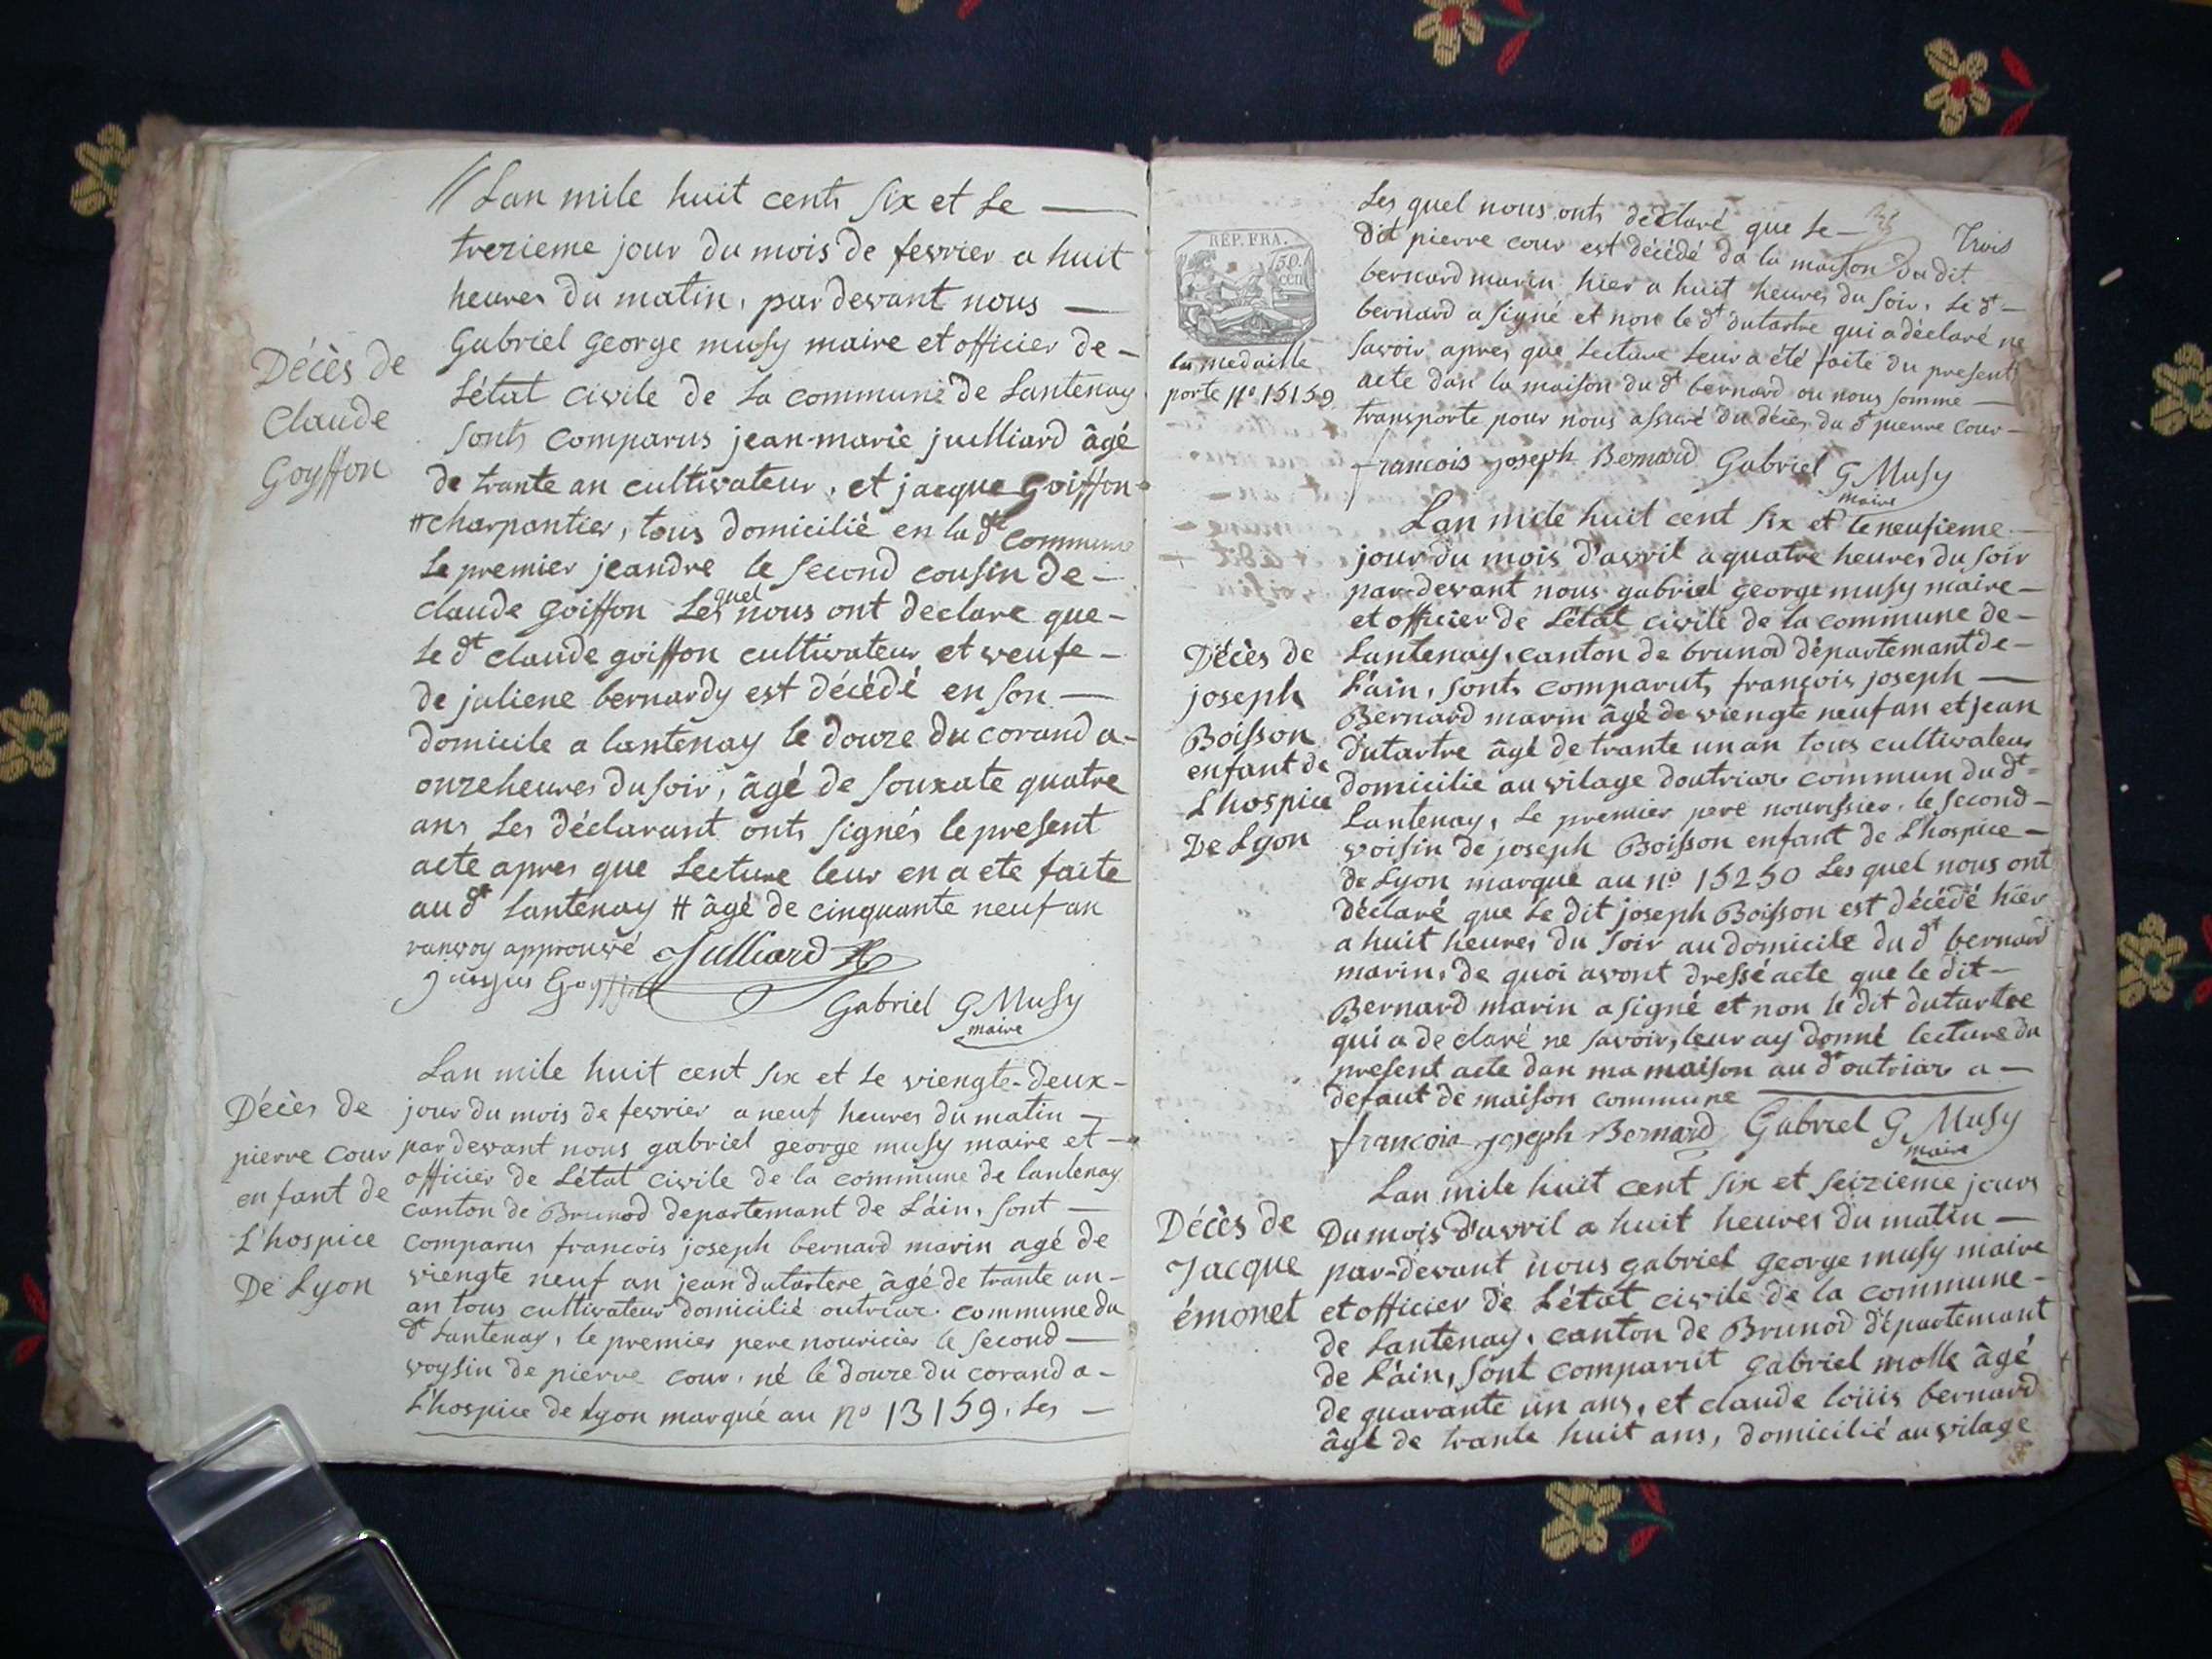 Lan mile huit cents six et le
trezieme jour du mois de fevrier a huit
heures du matin, par devant nous
Gabriel George musy maire et officier de
Létat civile de la commune de Lantenay
sonts comparus jean-marie juilliard âgé
de trante an cultivateur, et jacque Goiffon
# charpantier, tous domicilié en la dt commune
Le premier jeandre le second cousin de
claude Goiffon Lesquel nous ont declare que
Le dt claude goiffon cultivateur et veufe
de juliene bernardy est décédé en son
domicile a lantenay le douze du corand a
onze heures du soir, âgé de souxate quatre
ans Les déclarant onts signés le present
acte apres que Lecture leur en a ete faite
au dt Lantenay # âgé de cinquante neuf an
ranvoy approuvé Julliard
Jacques Goyffon
Gabriel G Musy
maire
Décès de
Claude
Goyffon
Lan mile huit cent six et le viengte-deux
jour du mois de fevrier a neuf heures du matin
par devant nous gabriel george musy maire et
officier de Létat civile de la commune de lantenay
canton de Brunod departemant de Láin, sont
comparus francois joseph bernard marin agé de
viengte neuf an jean dutartere âgé de trante un
an tous cultivateur domicilié outriaz commune du
dt Lantenay, le premier pere nouricier le second
voysin de pierre cour, né le douze du corand a
L'hospice de Lyon marqué au no 13159. Les
Décès de
pierre cour
enfant de
L'hospice
De Lyon
Trois
Les quel nous onts déclaré que le
dit pierre cour est décédé da la maison du dit
bernard marin hier a huit heures du soir, Le dt
bernard a signé et non le dt dutartre qui a déclaré ne
savoir apres que Lecture leur a été faite du present
acte dan la maison du dt bernard ou nous somme
transporte pour nous assuré du décès du dt pierre cour
francois joseph Bernard Gabriel G Musy
maire
REP. FRA.
50.
cent
la medaille
porte No 15159
Lan mile huit cent six et le neufieme
jour du mois d'avril a quatre heures du soir
par-devant nous gabriel george musy maire
et officier de Létat civile de la commune de
Lantenay, canton de brunod départemant de
L'ain, sonts comparuts françois joseph
Bernard marin âgé de viengte neuf an et jean
dutartre âgé de trante un an tous cultivateur
domicilié au vilage doutriaz commun du dt
Lantenay, Le premier pere nourissier, le second
voisin de joseph Boisson enfant de L'hospice
de Lyon marqué au no 15250 Les quel nous ont
déclaré que Le dit joseph Boisson est décédé hier
a huit heures du soir au domicile du dt bernard
marin, de quoi avont dressé acte que le dit
Bernard marin a signé et non le dit dutartre
qui a declaré ne savoir, leur ay donné lecture du
present acte dan ma maison au dt outriaz a
defaut de maison commune
francois joseph Bernard Gabriel G Musy
maire
Décès de
joseph
Boisson
enfant de
L'hospice
De Lyon
Lan mile huit cent six et seizieme jours
Du mois d'avril a huit heures du matin
par-devant nous gabriel george musy maire
et officier de Létat civile de la commune
de Lantenay, canton de Brunod départemant
de Láin, sont comparut gabriel molle âgé
de quarante un ans, et claude loüis bernard
âgé de trante huit ans, domicilié au vilage
Décès de
Jacque
émonet